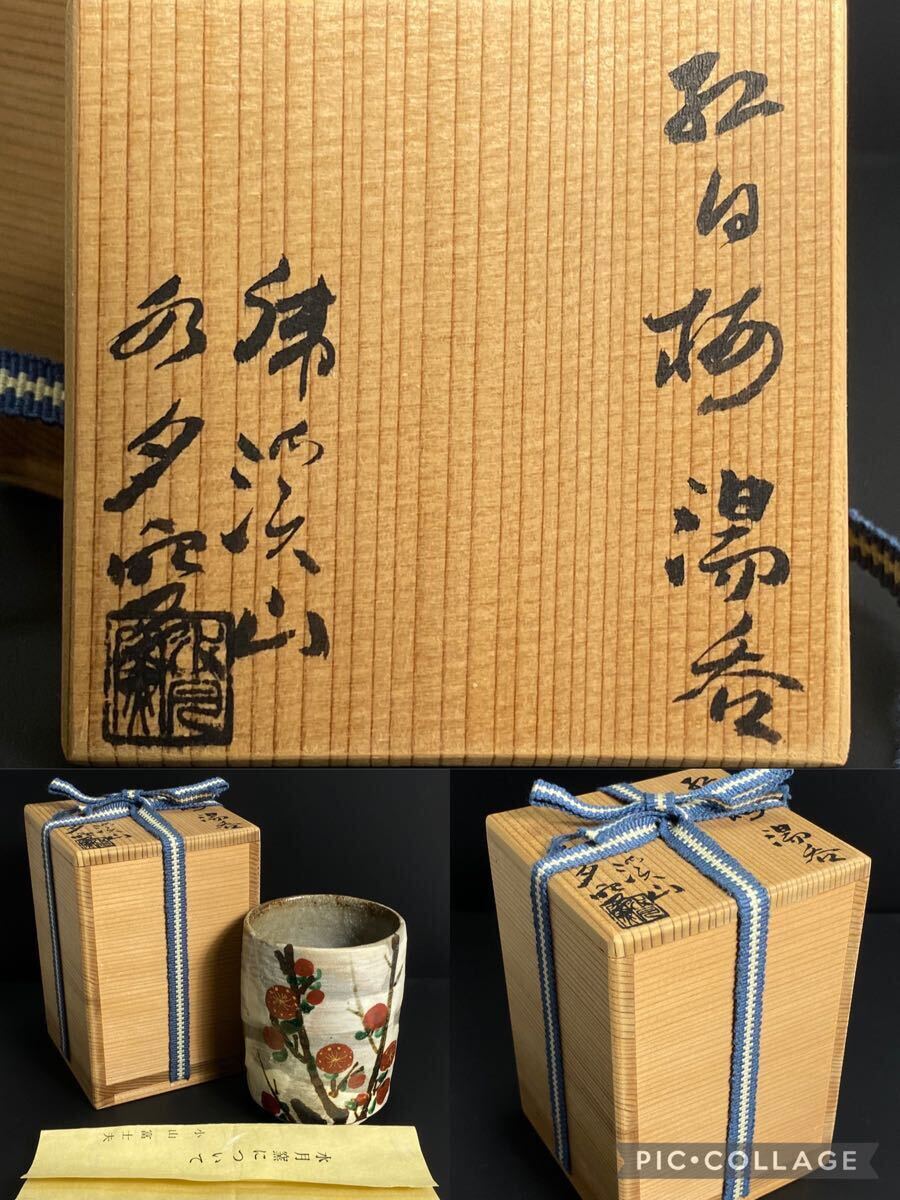 紅白梅湯呑
虎渓山
水月窯
水月窯について
小山冨士夫
PIC•COLLAGE